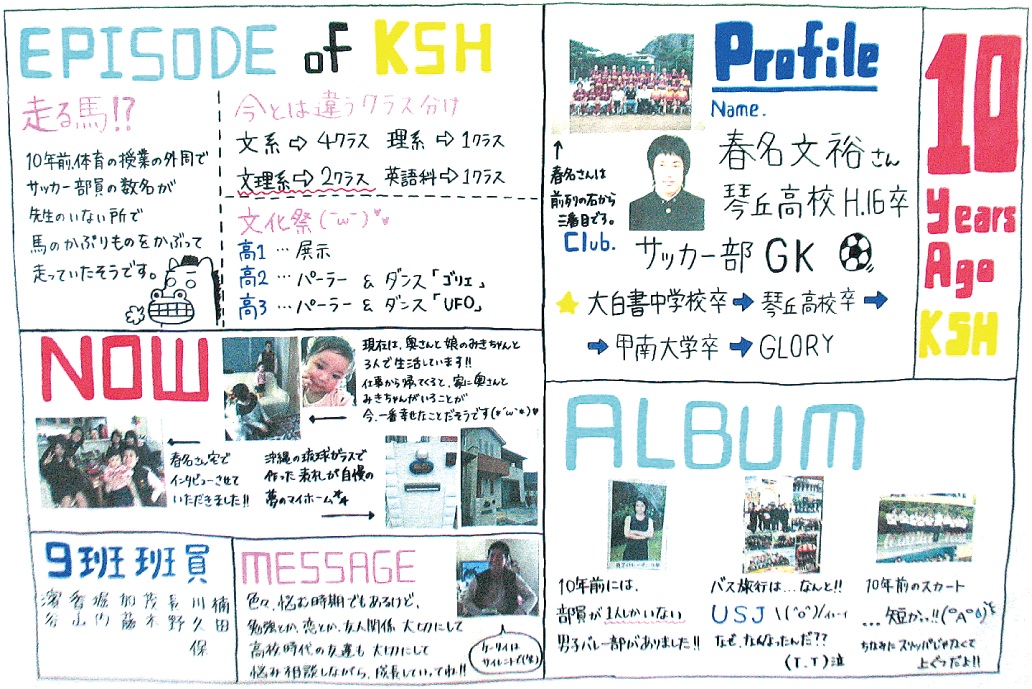 EPISODE of KSH
走る馬!?
10年前、体育の授業の外周で
サッカー部員の数名が
先生のいない所で
馬のかぶりものをかぶって
走っていたそうです。
今とは違うクラス分け
文系⇨4クラス 理系⇨1クラス
文理系⇨2クラス 英語科⇨1クラス
文化祭(˘ω˘)♥♥
高1 … 展示
高2 … パーラー & ダンス「ゴリエ」
高3 … パーラー & ダンス「UFO」
Profile
Name.
春名文裕さん
琴丘高校H.16卒
↑
春名さんは
前列の右から
三番目です。
Club.
サッカー部 GK
★ 大白書中学校卒 ➡ 琴丘高校卒 ➡
➡ 甲南大学卒 ➡ GLORY
10
Years
Ago
KSH
NOW
現在は、奥さんと娘のみきちゃんと
3人で生活しています!!
仕事から帰ってくると、家に奥さんと
みきちゃんがいることが
今、一番幸せだことだそうです(*´ω`*)♥
春名さん家で
インタビューさせて
いただきました!!
沖縄の琉球ガラスで
作った表札が自慢の
夢のマイホーム
9班班員
香山
堀内
加藤
茂木
長野
川久保
楠田
MESSAGE
色々、悩む時期でもあるけど、
勉強とか、恋とか、友人関係 大切にして
高校時代の友達も 大切にして
悩み相談しながら、成長していってね!!
ケータイは
サイレントで(笑)
ALBUM
10年前には、
部員が1人しかいない
男子バレー部がありました!!
バス旅行は…なんと!!
USJ \(^o^)/ィーイ
なぜ、なくなったんだ??
(T.T)泣
10年前のスカート
…短かっ!!(°A°)
ちなみに スリッパじゃなくて
上ぐつだよ!!